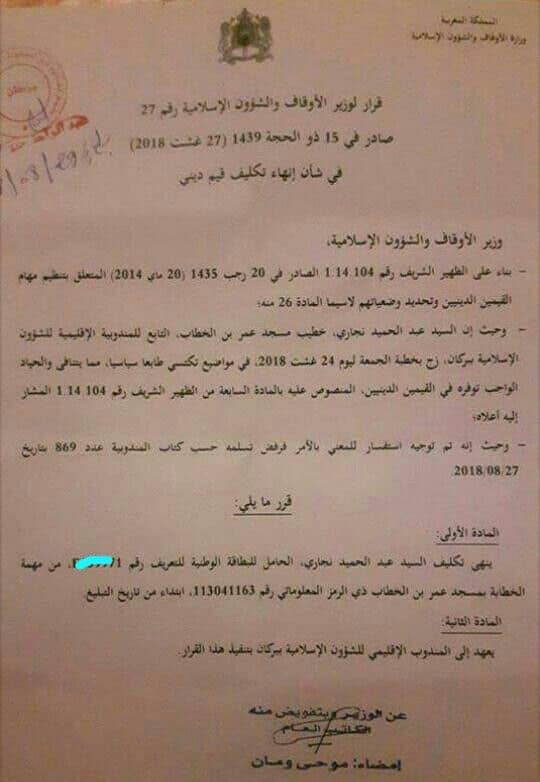 المملكة المغربية
وزارة الأوقاف والشؤون الإسلامية
قرار لوزير الأوقاف والشؤون الإسلامية رقم 27
صادر في 15 ذو الحجة 1439 (27 غشت 2018)
في شأن إنهاء تكليف قيم ديني
وزير الأوقاف والشؤون الإسلامية،
– بناء على الظهير الشريف رقم 1.14.104 الصادر في 20 رجب 1435 (20 ماي 2014) المتعلق بتنظيم مهام
القيمين الدينيين وتحديد وضعياتهم لاسيما المادة 26 منه؛
– وحيث إن السيد عبد الحميد نجاري، خطيب مسجد عمر بن الخطاب، التابع للمندوبية الإقليمية للشؤون
الإسلامية ببركان، زج بخطبة الجمعة ليوم 24 غشت 2018، في مواضيع تكتسي طابعا سياسيا، مما يتنافى والحياد
الواجب توفره في القيمين الدينيين، المنصوص عليه بالمادة السابعة من الظهير الشريف رقم 1.14.104 المشار
إليه أعلاه؛
– وحيث إنه تم توجيه استفسار للمعني بالأمر فرفض تسلمه حسب كتاب المندوبية عدد 869 بتاريخ
2018/08/27.
قرر ما يلي:
المادة الأولى:
ينهى تكليف السيد عبد الحميد نجاري، الحامل للبطاقة الوطنية للتعريف رقم ، من مهمة
الخطابة بمسجد عمر بن الخطاب ذي الرمز المعلوماتي رقم 113041163، ابتداء من تاريخ التبليغ.
المادة الثانية:
يعهد إلى المندوب الإقليمي للشؤون الإسلامية ببركان بتنفيذ هذا القرار.
عن الوزير وبتفويض منه
الكاتب العام
إمضاء: موحى ومان